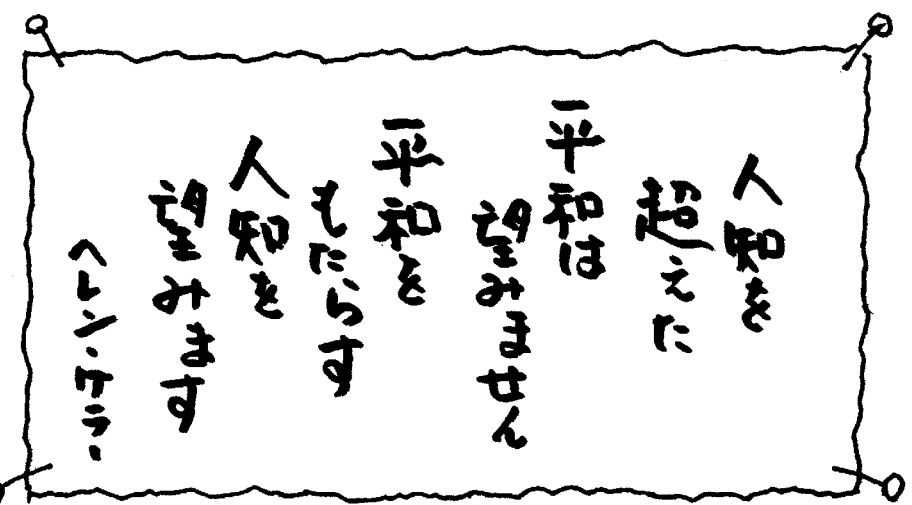 人知を
超えた
平和は
望みません
平和を
もたらす
人知を
望みます
ヘレン・ケラー